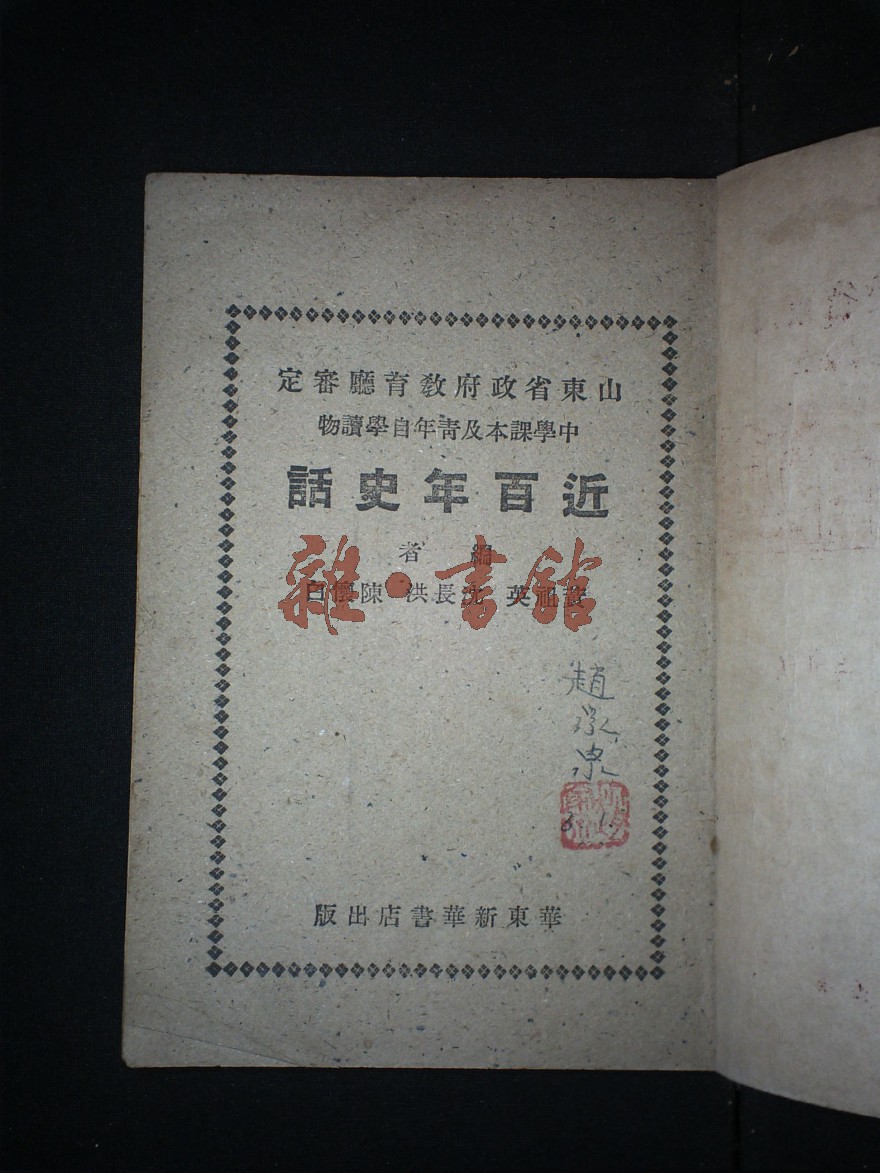 山東省政府教育廳審定
中學課本及青年自學讀物
近百年史話
編者
黃祖英 沈長洪 陳懷白
雜·書館
趙泓
華東新華書店出版